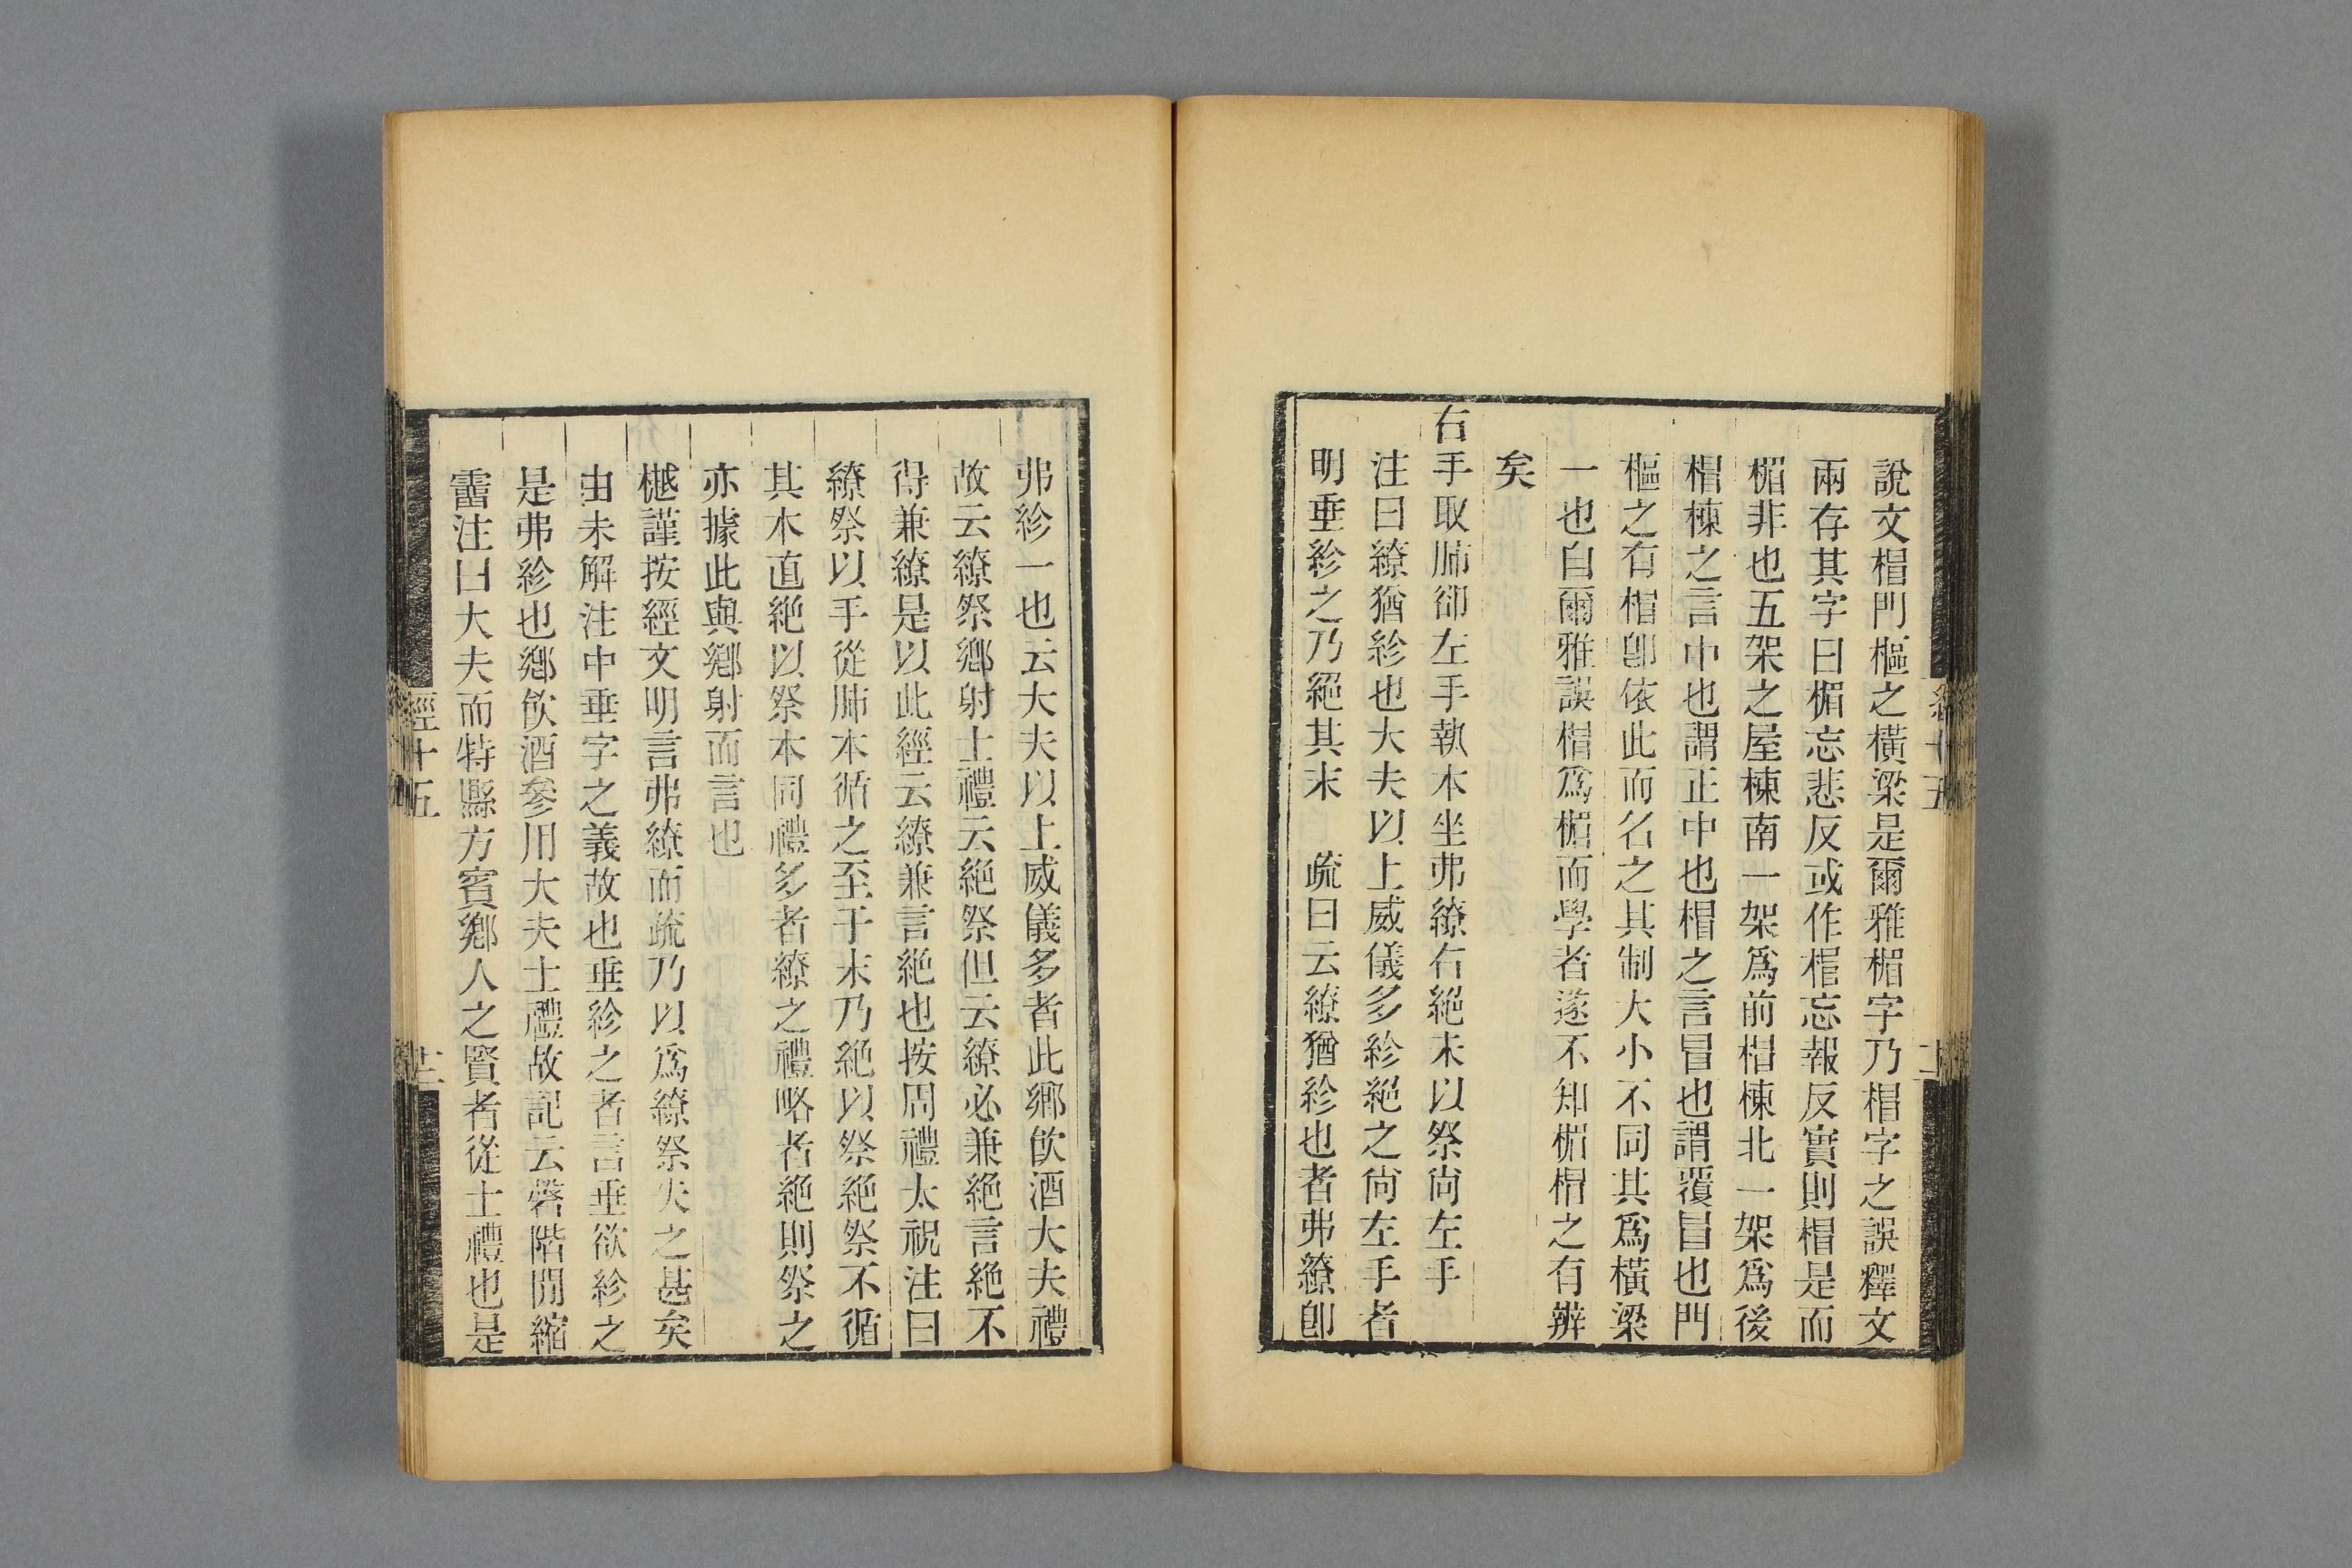 說文楣門樞之橫梁是爾雅楣字乃楣字之誤釋文
兩存其字曰楣忘悲反或作楣忘報反實則楣是而
楣非也五架之屋棟南一架爲前楣棟北一架爲後
楣棟之言中也謂正中也楣之言冒也謂覆冒也門
樞之有楣卽依此而名之其制大小不同其爲橫梁
一也自爾雅誤楣爲楣而學者遂不知楣楣之有辨
矣
右手取肺卻左手執本坐弗繚右絕末以祭尚左手
注曰繚猶紾也大夫以上威儀多紾絕之尚左手者
明垂紾之乃絕其末　疏曰云繚猶紾也者弗繚卽
弗紾一也云大夫以上威儀多者此鄉飲酒大夫禮
故云繚祭鄉射士禮云絕祭但云繚必兼絕言絕不
得兼繚是以此經云繚兼言絕也按周禮太祝注曰
繚祭以手從肺本循之至于末乃絕以祭絕祭不循
其本直絕以祭本同禮多者繚之禮略者絕則祭之
亦據此與鄉射而言也
樾謹按經文明言弗繚而疏乃以爲繚祭失之甚矣
由未解注中垂字之義故也垂紾之者言垂欲紾之
是弗紾也鄉飲酒參用大夫士禮故記云磬階閒縮
霤注曰大夫而特縣方賓鄉人之賢者從士禮也是
經十五